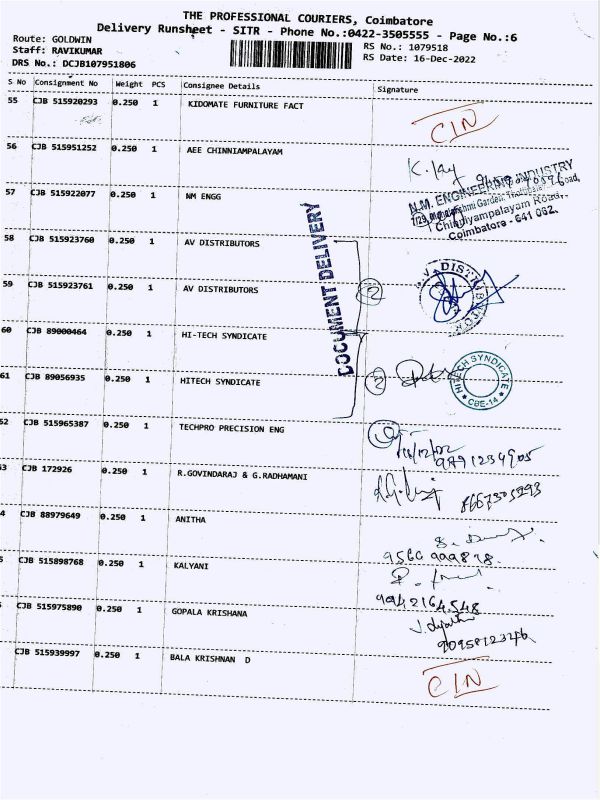 THE PROFESSIONAL COURIERS, Coimbatore
Delivery Runsheet - SITR - Phone No.:0422-3505555 - Page No.:6
Route: GOLDWIN
Staff: RAVIKUMAR
RS No.: 1079518
DRS No.: DCJB107951806
RS Date: 16-Dec-2022
S No Consignment No Weight PCS Consignee Details Signature
55 CJB 515920293 0.250 1 KIDOMATE FURNITURE FACT
CIN
56 CJB 515951252 0.250 1 AEE CHINNIAMPALAYAM
57 CJB 515922077 0.250 1 NM ENGG
N.M. ENGINEERING INDUSTRY
Chinniyampalayam Road,
Coimbatore - 641 062.
DOCUMENT DELIVERY
58 CJB 515923760 0.250 1 AV DISTRIBUTORS
59 CJB 515923761 0.250 1 AV DISTRIBUTORS
2
60 CJB 89000464 0.250 1 HI-TECH SYNDICATE
61 CJB 89056935 0.250 1 HITECH SYNDICATE
2
HI-TECH SYNDICATE
CBE-14
62 CJB 515965387 0.250 1 TECHPRO PRECISION ENG
9891234905
3 CJB 172926 0.250 1 R.GOVINDARAJ & G.RADHAMANI
8667305293
4 CJB 88979649 0.250 1 ANITHA
CJB 515898768 0.250 1 KALYANI
9042164548
CJB 515975890 0.250 1 GOPALA KRISHANA
CJB 515939997 0.250 1 BALA KRISHNAN D
CIN